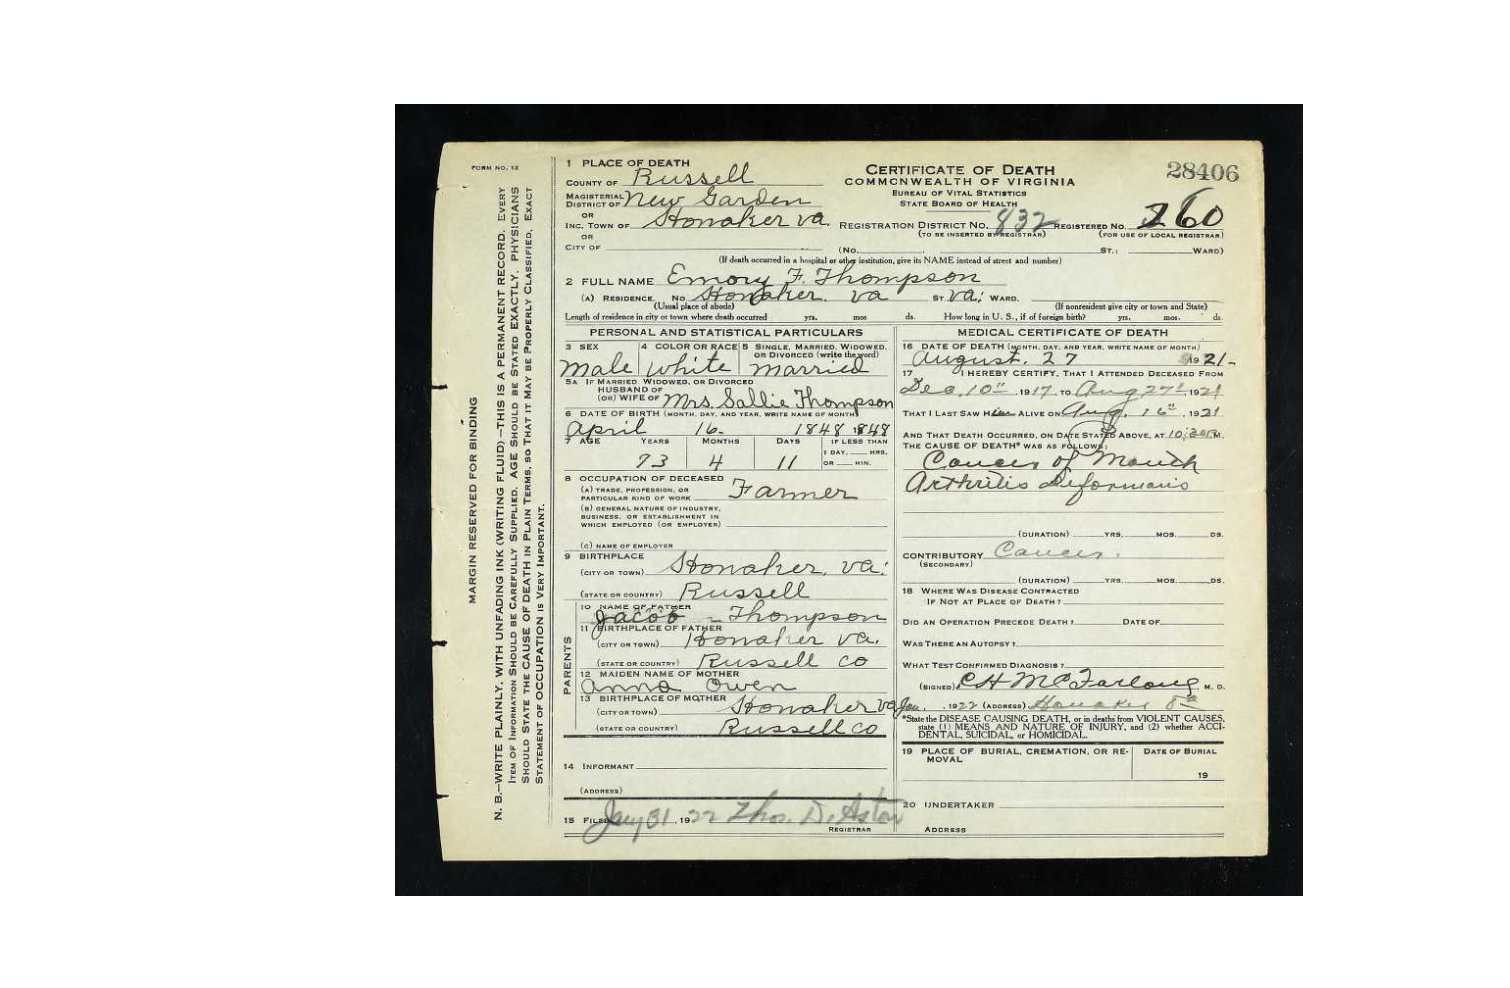 FORM NO. 12
MARGIN RESERVED FOR BINDING
N. B.—WRITE PLAINLY, WITH UNFADING INK (WRITING FLUID)—THIS IS A PERMANENT RECORD. EVERY
ITEM OF INFORMATION SHOULD BE CAREFULLY SUPPLIED. AGE SHOULD BE STATED EXACTLY. PHYSICIANS
SHOULD STATE THE CAUSE OF DEATH IN PLAIN TERMS, SO THAT IT MAY BE PROPERLY CLASSIFIED. EXACT
STATEMENT OF OCCUPATION IS VERY IMPORTANT.
1 PLACE OF DEATH
COUNTY OF Russell
MAGISTERIAL DISTRICT OF New Garden
OR
INC. TOWN OF Honaker Va.
OR
CITY OF
CERTIFICATE OF DEATH
COMMONWEALTH OF VIRGINIA
BUREAU OF VITAL STATISTICS
STATE BOARD OF HEALTH
28406
REGISTRATION DISTRICT NO. 832 REGISTERED NO. 260
(TO BE INSERTED BY REGISTRAR) (FOR USE OF LOCAL REGISTRAR)
(No. ST.; WARD)
(If death occurred in a hospital or other institution, give its NAME instead of street and number)
2 FULL NAME Emory F. Thompson
(A) RESIDENCE. No Honaker. Va ST. Va; WARD.
(Usual place of abode) (If nonresident give city or town and State)
Length of residence in city or town where death occurred yrs. mos ds. How long in U. S., if of foreign birth? yrs. mos. ds.
PERSONAL AND STATISTICAL PARTICULARS
3 SEX 4 COLOR OR RACE 5 SINGLE, MARRIED, WIDOWED, OR DIVORCED (write the word)
Male White married
5A IF MARRIED, WIDOWED, OR DIVORCED
HUSBAND OF
(OR) WIFE OF Mrs. Sallie Thompson
6 DATE OF BIRTH (MONTH, DAY, AND YEAR, WRITE NAME OF MONTH)
April 16. 1848 1848
7 AGE YEARS MONTHS DAYS IF LESS THAN
1 DAY, HRS.
73 4 11 OR MIN.
8 OCCUPATION OF DECEASED
(A) TRADE, PROFESSION, OR
PARTICULAR KIND OF WORK Farmer
(B) GENERAL NATURE OF INDUSTRY,
BUSINESS, OR ESTABLISHMENT IN
WHICH EMPLOYED (OR EMPLOYER)
(C) NAME OF EMPLOYER
9 BIRTHPLACE
(CITY OR TOWN) Honaker, Va.
(STATE OR COUNTRY) Russell
PARENTS
10 NAME OF FATHER
Jacob Thompson
11 BIRTHPLACE OF FATHER
(CITY OR TOWN) Honaker Va.
(STATE OR COUNTRY) Russell Co
12 MAIDEN NAME OF MOTHER
Anna Owen
13 BIRTHPLACE OF MOTHER
(CITY OR TOWN) Honaker Va
(STATE OR COUNTRY) Russell Co
14 INFORMANT
(ADDRESS)
15 FILED Jany 31, 1922 Thos. D. Aston
REGISTRAR
MEDICAL CERTIFICATE OF DEATH
16 DATE OF DEATH (MONTH, DAY, AND YEAR, WRITE NAME OF MONTH)
August. 27 1921-
17 I HEREBY CERTIFY, THAT I ATTENDED DECEASED FROM
Dec. 10", 1917, TO Aug 27", 1921
THAT I LAST SAW Him ALIVE ON Aug. 16", 1921
AND THAT DEATH OCCURRED, ON DATE STATED ABOVE, AT 10:30 P.M.
THE CAUSE OF DEATH* WAS AS FOLLOWS:
Cancer of Mouth
Arthritis deformans
(DURATION) YRS. MOS. DS.
CONTRIBUTORY Cancer.
(SECONDARY)
(DURATION) YRS. MOS. DS.
18 WHERE WAS DISEASE CONTRACTED
IF NOT AT PLACE OF DEATH?
DID AN OPERATION PRECEDE DEATH? DATE OF
WAS THERE AN AUTOPSY?
WHAT TEST CONFIRMED DIAGNOSIS?
(SIGNED) C H McFarlong, M. D.
Jan., 1922 (ADDRESS) Honaker Va
*State the DISEASE CAUSING DEATH, or in deaths from VIOLENT CAUSES,
state (1) MEANS AND NATURE OF INJURY, and (2) whether ACCI-
DENTAL, SUICIDAL, or HOMICIDAL.
19 PLACE OF BURIAL, CREMATION, OR RE-
MOVAL
DATE OF BURIAL
19
20 UNDERTAKER
ADDRESS